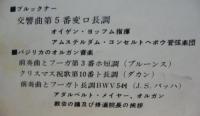 ■ブルックナー
交響曲第5番変ロ長調
オイゲン・ヨッフム指揮
アムステルダム・コンセルトヘボウ管弦楽団
■バジリカのオルガン音楽
前奏曲とフーガ第3番ホ短調(ブルーンス)
クリスマス祝歌第10番ト長調(ダカン)
前奏曲とフーガト長調BWV541(J.S.バッハ)
アダルベルト・メイヤー、オルガン
教会の鐘及び修道院長の挨拶